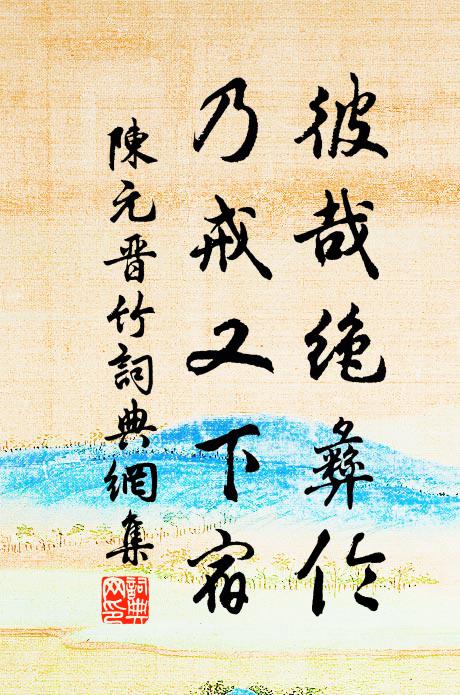 彼哉絶彝倫
乃戒又下宿
陳元晋竹詞典網集
詞典網印